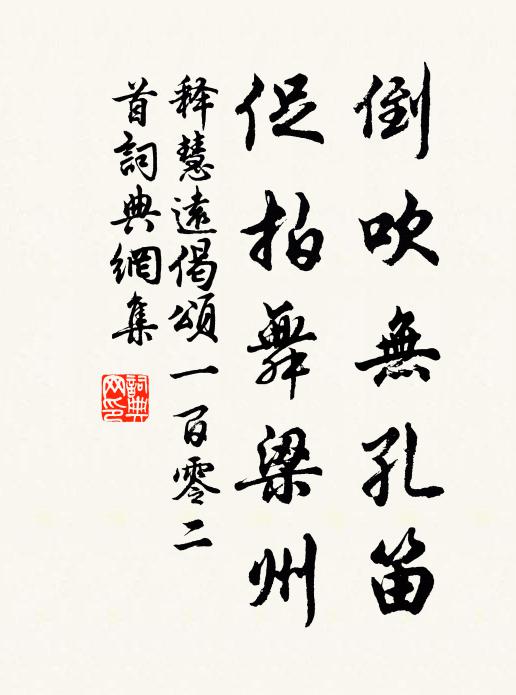 倒吹無孔笛
促拍舞梁州
释慧遠偈頌一百零二
首詞典網集
詞典
网印